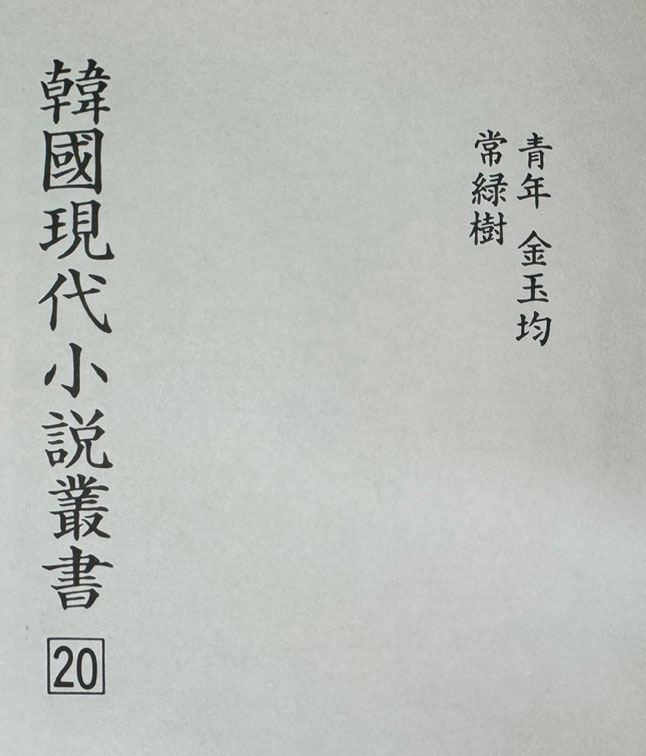 青年 金玉均
常緑樹
韓國現代小説叢書 20